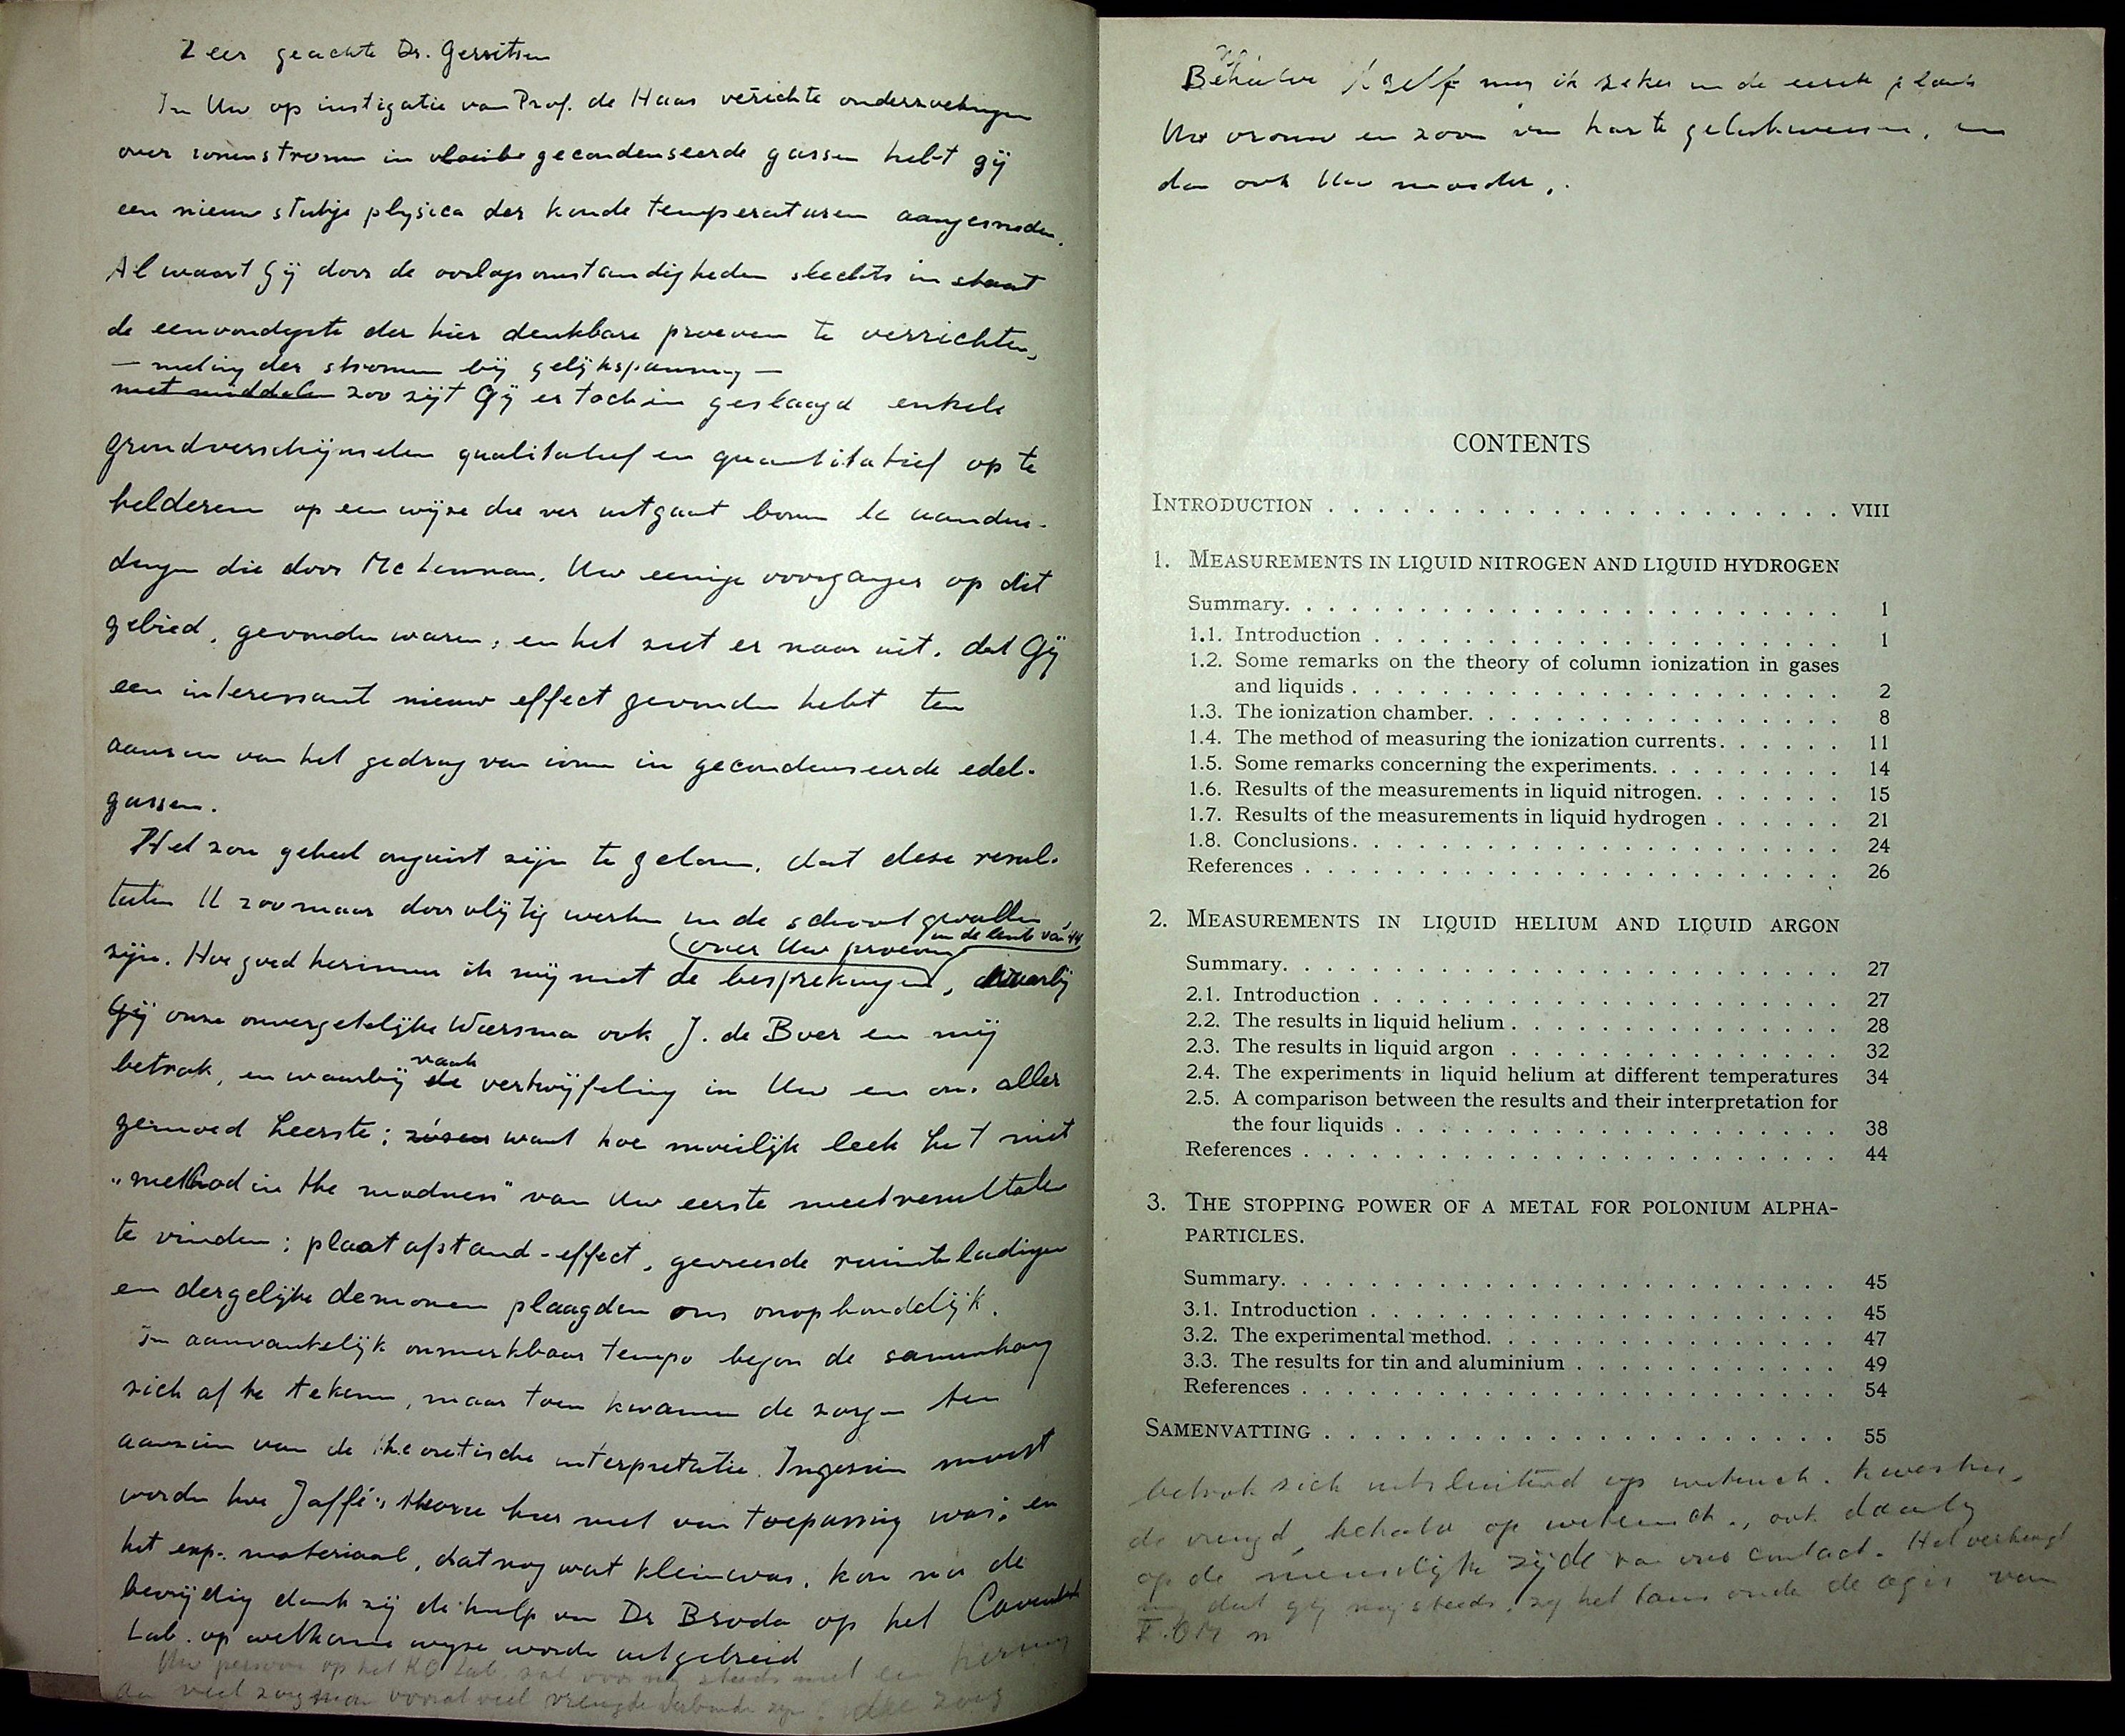 Zeer geachte Dr. Gerritsen
In Uw op instigatie van Prof. de Haas verichte onderzoekingen
over ionenstromen in vloeibe gecondenseerde gassen hebt gij
een nieuw stukje physica der koude temperaturen aangesneden.
Al waart Gij door de oorlogsomstandigheden slechts in staat
de eenvoudigste der hier denkbare proeven te verrichten,
— meting der stromen bij gelijkspanning —
met middelen zoo zijt Gij er toch in geslaagd enkele
grondverschijnselen qualitatief en quantitatief op te
helderen op een wijze die ver uitgaat boven de aandui-
dingen die door McLennan, Uw eenige voorganger op dit
gebied, gevonden waren; en het ziet er naar uit, dat Gij
een interessant nieuw effect gevonden hebt ten
aanzien van het gedrag van ionen in gecondenseerde edel-
gassen.
Het zou geheel onjuist zijn te geloven, dat deze resul-
taten U zoo maar door vlijtig werken in de schoot gevallen
over Uw proeven in de lente van 44
zijn. Hoe goed herinner ik mij niet de besprekingen, waarbij
Gij onze onvergetelijke Wiersma ook J. de Boer en mij
betrok, en waarbij de vaak vertwijfeling in Uw en ons aller
gemoed heerste; want hoe moeilijk leek het niet
"method in the madness" van Uw eerste meetresultaten
te vinden; plaatafstand-effect, gevreesde ruimteladingen
en dergelijke demonen plaagden ons onophoudelijk.
In aanvankelijk onmerkbaar tempo begon de samenhang
zich af te tekenen, maar toen kwamen de zorgen ten
aanzien van de theoretische interpretatie. Ingezien moest
worden hoe Jaffé's theorie hier niet van toepassing was; en
het exp. materiaal, dat nog wat klein was, kon na de
bevrijding dank zij de hulp van Dr Broda op het Cavendish
Lab. op welkome wijze worden uitgebreid
Uw persoon op het KO Lab. zal voor mij steeds met een herinnering
aan veel zorg maar vooral veel vreugde verbonden zijn. die zorg
Behalve Uzelf mag ik zeker in de eerste plaats
Uw vrouw en zoon van harte gelukwensen, en
dan ook Uw moeder.
CONTENTS
INTRODUCTION . . . . . . . . . . . . . . . . . . . . VIII
1. MEASUREMENTS IN LIQUID NITROGEN AND LIQUID HYDROGEN
Summary. . . . . . . . . . . . . . . . . . . . . . . 1
1.1. Introduction . . . . . . . . . . . . . . . . . . . 1
1.2. Some remarks on the theory of column ionization in gases
and liquids . . . . . . . . . . . . . . . . . . . . 2
1.3. The ionization chamber. . . . . . . . . . . . . . . 8
1.4. The method of measuring the ionization currents. . . . . . 11
1.5. Some remarks concerning the experiments. . . . . . . . . 14
1.6. Results of the measurements in liquid nitrogen. . . . . . . 15
1.7. Results of the measurements in liquid hydrogen . . . . . . 21
1.8. Conclusions. . . . . . . . . . . . . . . . . . . . 24
References . . . . . . . . . . . . . . . . . . . . . . 26
2. MEASUREMENTS IN LIQUID HELIUM AND LIQUID ARGON
Summary. . . . . . . . . . . . . . . . . . . . . . . 27
2.1. Introduction . . . . . . . . . . . . . . . . . . . 27
2.2. The results in liquid helium . . . . . . . . . . . . . 28
2.3. The results in liquid argon . . . . . . . . . . . . . . 32
2.4. The experiments in liquid helium at different temperatures 34
2.5. A comparison between the results and their interpretation for
the four liquids . . . . . . . . . . . . . . . . . . 38
References . . . . . . . . . . . . . . . . . . . . . . 44
3. THE STOPPING POWER OF A METAL FOR POLONIUM ALPHA-
PARTICLES.
Summary. . . . . . . . . . . . . . . . . . . . . . . 45
3.1. Introduction . . . . . . . . . . . . . . . . . . . 45
3.2. The experimental method. . . . . . . . . . . . . . . 47
3.3. The results for tin and aluminium . . . . . . . . . . . 49
References . . . . . . . . . . . . . . . . . . . . . . 54
SAMENVATTING . . . . . . . . . . . . . . . . . . . . 55
betrok zich uitsluitend op wetensch. kwesties,
de vreugd, behalve op wetensch., ook daarbij
op de menselijke zijde van ons contact. Het verheugt
mij dat gij nog steeds, zij het thans onder de aegis van
F.O.M